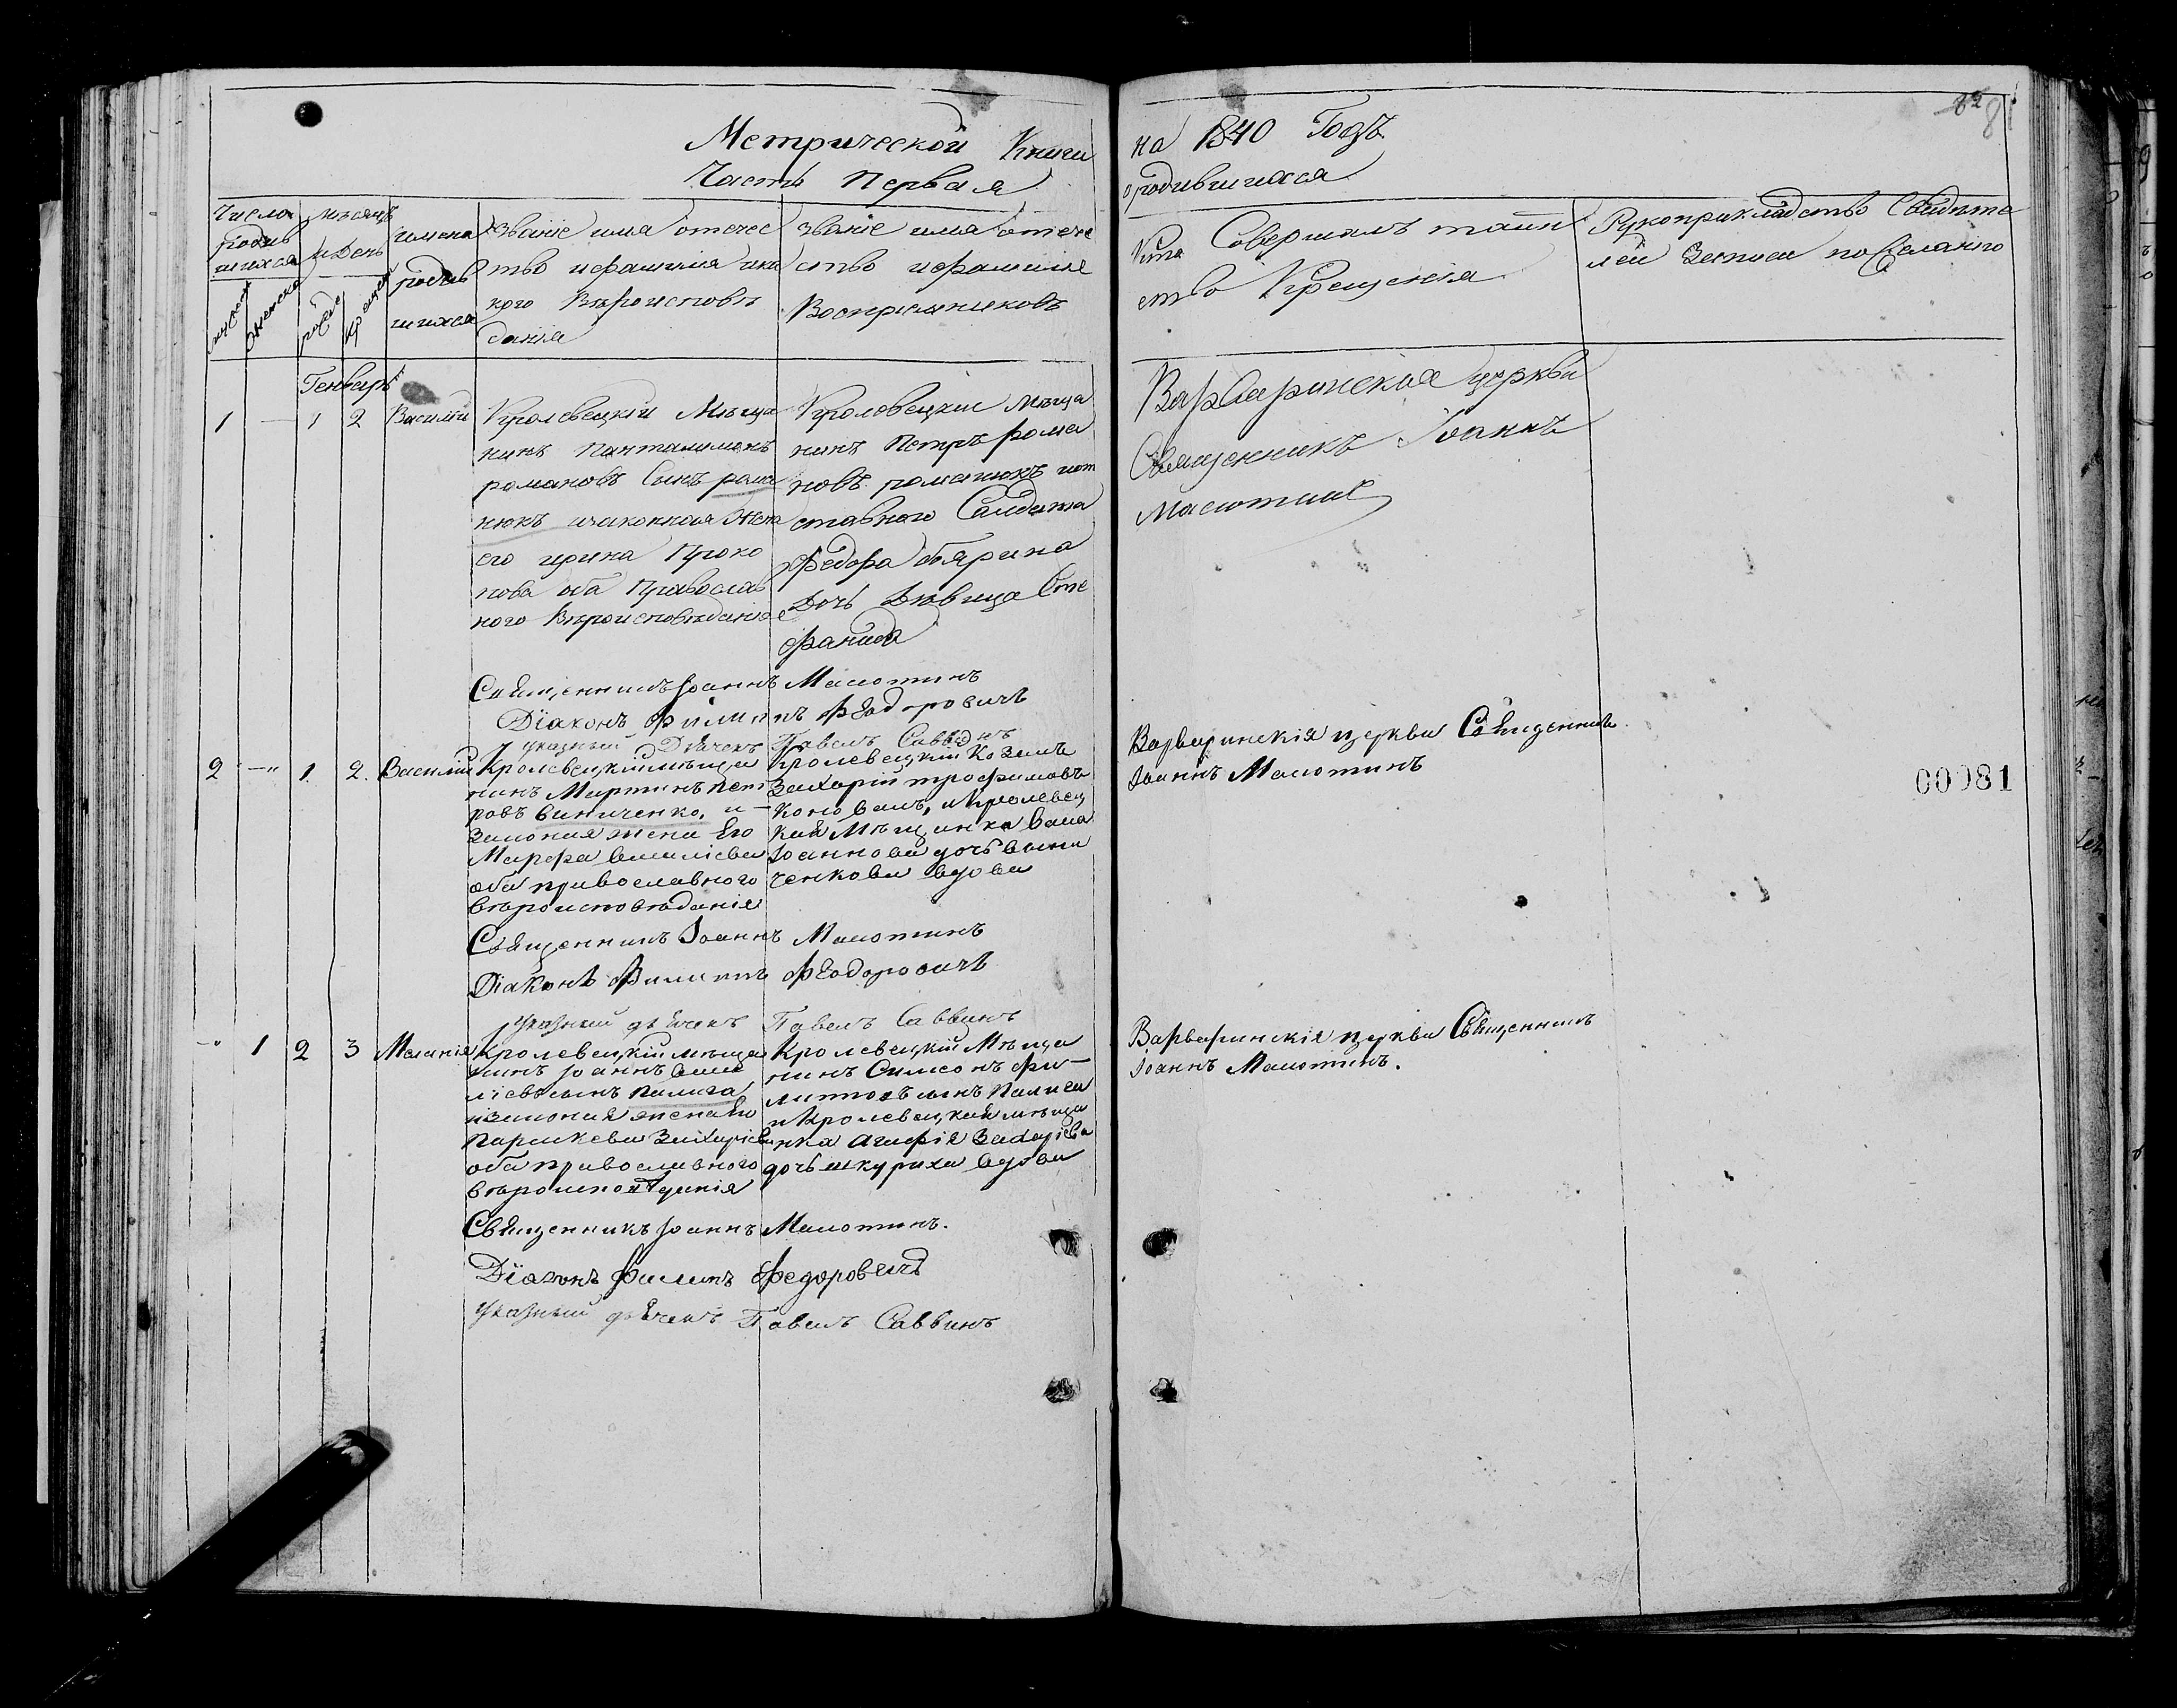 Метрической Книги
Часть Первая
на 1840 Годъ
о родившихся
82 81
Число родив шихся
мужеска
женска
мѣсяцъ и день
рожде
крещен
имена родив шихся
Званіе имя отечес
тво и фамилия и ка
кого Вѣроисповѣ
данія
Званіе имя отече
ство и фамилия
Восприемниковъ
Кто Совершалъ таин
ство Крещенія
Рукоприкладство Свидѣте
лей Записи по желанію
Генварь
1 — 1 2 Василій
Кролевецкій Мѣща
нинъ Пантелимонъ
романовъ Сынъ рома
нюкъ изаконная Жена
его ирина Проко
пова оба Православ
ного Вѣроисповѣданія
Кролевецкие Мѣща
нинъ Петръ рома
новъ романюкъ иот
ставного Салдата
Федора боярина
Дочь Дѣвица Сте
фанида
Варваринская церкви
Священникъ Іоаннъ
Малютинъ
Священникъ Іоаннъ Малютинъ
Діаконъ Филиппъ Феодоровичъ
Указный Дьячекъ Павелъ Саввинъ
2 — 1. 2. Василій
Кролевецкій мѣща
нинъ Мартинъ пет
ровъ виниченко, и
законая жена Его
Марфа василіева
оба православного
вѣроисповѣданія
Кролевецкій Козакъ
Захарій трофимовъ
Коновалъ, и Кролевец
кая Мѣщанка
Іоаннова дочь вини
ченкова вдова
Варваринскія церкви Священникъ
Іоаннъ Малютинъ
00081
Священникъ Іоаннъ Малютинъ
Діаконъ Филиппъ Феодоровичъ
Указный дьячекъ Павелъ Саввинъ
— 1 2 3 Меланія
Кролевецкій мѣща
нинъ Іоаннъ васи
лієвъ сынъ палига
изаконая жена Его
Параскева Захаріева
оба православного
Кролевецкій Мѣща
нинъ Симеонъ фи
липповъ сынъ Палига
и Кролевецкая мѣща
нка Агафія Захаріева
дочь шкуриха вдова
Варваринскія церкви Священникъ
Іоаннъ Малютинъ.
Священникъ Іоаннъ Малютинъ.
Діаконъ Филипъ Федоровичъ
Указный дьячекъ Павелъ Саввинъ